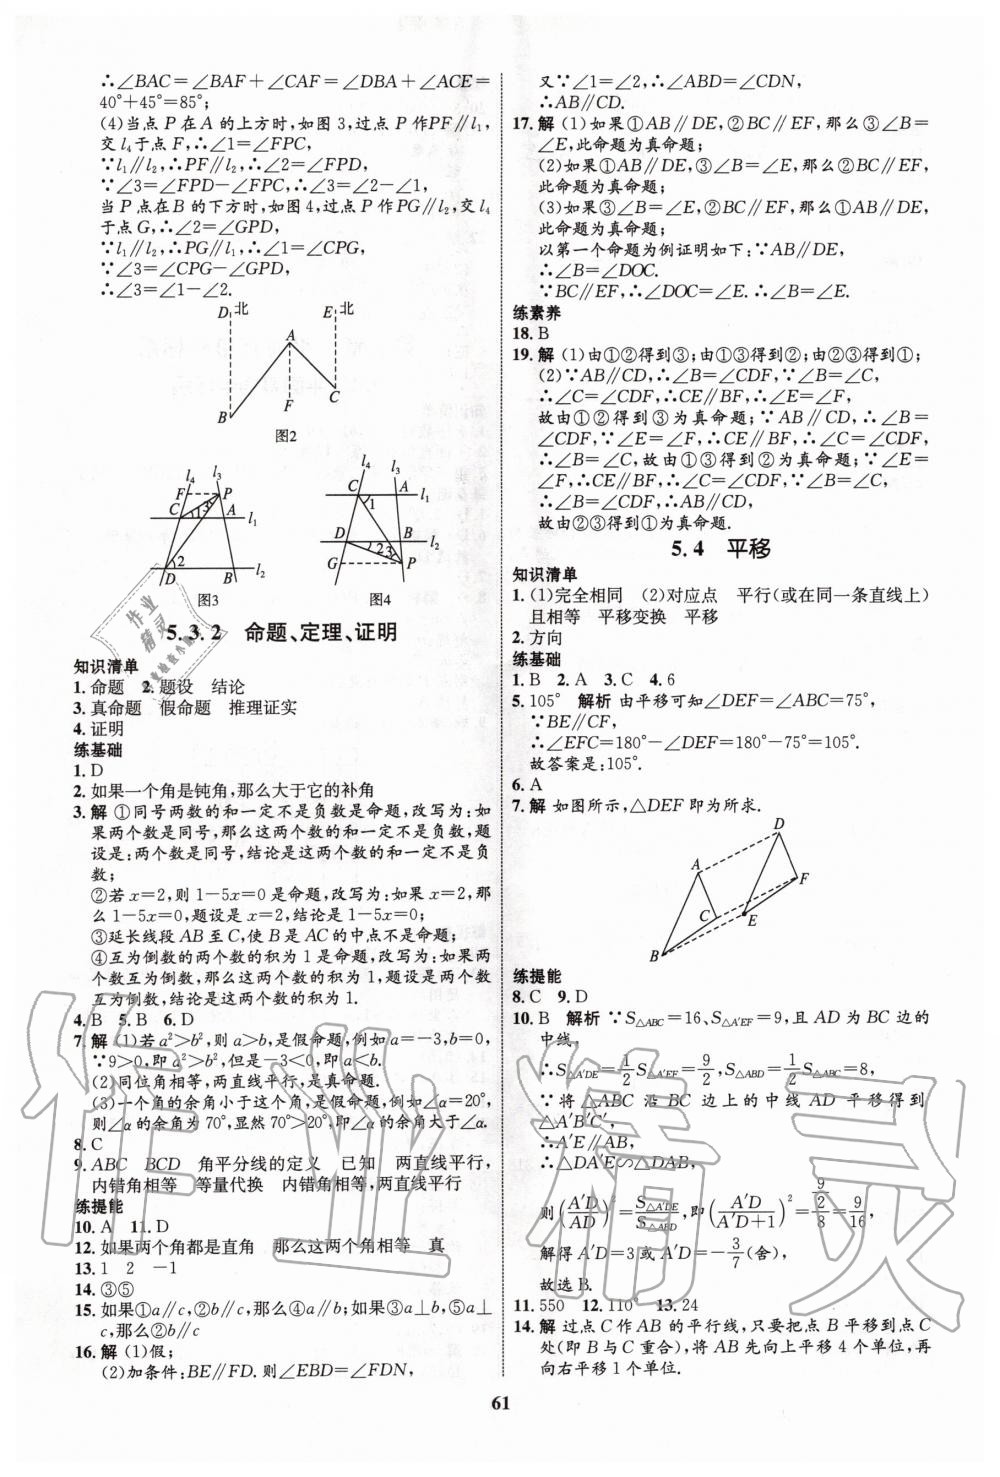 ∴∠BAC=∠BAF+∠CAF=∠DBA+∠ACE=
40°+45°=85°;
(4)当点 P 在 A 的上方时,如图 3,过点 P 作PF∥l₁,
交 l₄于点 F,∴∠1=∠FPC,
∵l₁∥l₂,∴PF∥l₂,∴∠2=∠FPD,
∵∠3=∠FPD-∠FPC,∴∠3=∠2-∠1,
当 P 点在 B 的下方时,如图 4,过点 P 作PG∥l₂,交 l₄
于点 G,∴∠2=∠GPD,
∵l₁∥l₂,∴PG∥l₁,∴∠1=∠CPG,
∵∠3=∠CPG-∠GPD,
∴∠3=∠1-∠2.
D 北 E 北
A
B F C
图2
l₄ l₃
F P
C 1 3 A l₁
2
D B l₂
图3
l₄ l₃
C A l₁
1
D B l₂
2 3
G P
图4
5.3.2 命题、定理、证明
知识清单
1. 命题 2. 题设 结论
3. 真命题 假命题 推理证实
4. 证明
练基础
1. D
2. 如果一个角是钝角,那么大于它的补角
3. 解 ①同号两数的和一定不是负数是命题,改写为:如
果两个数是同号,那么这两个数的和一定不是负数,题
设是:两个数是同号,结论是这两个数的和一定不是负
数;
②若 x=2,则 1-5x=0 是命题,改写为:如果 x=2,那
么 1-5x=0,题设是 x=2,结论是 1-5x=0;
③延长线段 AB 至 C,使 B 是 AC 的中点不是命题;
④互为倒数的两个数的积为 1 是命题,改写为:如果两
个数互为倒数,那么这两个数的积为 1,题设是两个数
互为倒数,结论是这两个数的积为 1.
4. B 5. B 6. D
7. 解 (1)若 a²>b²,则 a>b,是假命题,例如 a=-3,b=0,
∵9>0,即 a²>b²,但是-3<0,即 a<b.
(2)同位角相等,两直线平行,是真命题.
(3)一个角的余角小于这个角,是假命题,例如∠α=20°,
则∠α 的余角为 70°,显然 70°>20°,即∠α 的余角大于∠α.
8. C
9. ABC BCD 角平分线的定义 已知 两直线平行,
内错角相等 等量代换 内错角相等,两直线平行
练提能
10. A 11. D
12. 如果两个角都是直角 那么这两个角相等 真
13. 1 2 -1
14. ③⑤
15. 如果①a∥c,②b∥c,那么④a∥b;如果③a⊥b,⑤a⊥
c,那么②b∥c
16. 解 (1)假;
(2)加条件:BE∥FD.则∠EBD=∠FDN,
又∵∠1=∠2,∴∠ABD=∠CDN,
∴AB∥CD.
17. 解 (1)如果①AB∥DE,②BC∥EF,那么③∠B=
∠E,此命题为真命题;
(2)如果①AB∥DE,③∠B=∠E,那么②BC∥EF,
此命题为真命题;
(3)如果③∠B=∠E,②BC∥EF,那么①AB∥DE,
此命题为真命题;
以第一个命题为例证明如下:∵AB∥DE,
∴∠B=∠DOC.
∵BC∥EF,∴∠DOC=∠E.∴∠B=∠E.
练素养
18. B
19. 解 (1)由①②得到③;由①③得到②;由②③得到①;
(2)∵AB∥CD,∴∠B=∠CDF,∵∠B=∠C,
∴∠C=∠CDF,∴CE∥BF,∴∠E=∠F,
故由①②得到③为真命题;∵AB∥CD,∴∠B=
∠CDF,∵∠E=∠F,∴CE∥BF,∴∠C=∠CDF,
∴∠B=∠C,故由①③得到②为真命题;∵∠E=
∠F,∴CE∥BF,∴∠C=∠CDF,∵∠B=∠C,
∴∠B=∠CDF,∴AB∥CD,
故由②③得到①为真命题.
5.4 平移
知识清单
1. (1)完全相同 (2)对应点 平行(或在同一条直线上)
且相等 平移变换 平移
2. 方向
练基础
1. B 2. A 3. C 4. 6
5. 105° 解析 由平移可知∠DEF=∠ABC=75°,
∵BE∥CF,
∴∠EFC=180°-∠DEF=180°-75°=105°.
故答案是:105°.
6. A
7. 解 如图所示,△DEF 即为所求.
D
A
F
C
E
B
练提能
8. C 9. D
10. B 解析 ∵S△ABC=16、S△A′EF=9,且 AD 为 BC 边的
中线,
∴S△A′DE=1/2 S△A′EF=9/2,S△ABD=1/2 S△ABC=8,
∵将△ABC 沿 BC 边上的中线 AD 平移得到
△A′B′C′,
∴A′E∥AB,
∴△DA′E∽△DAB,
则(A′D/AD)²=S△A′DE/S△ABD,即(A′D/(A′D+1))²=(9/2)/8=9/16,
解得 A′D=3 或 A′D=-3/7(舍),
故选 B.
11. 550 12. 110° 13. 24
14. 解 过点 C 作 AB 的平行线,只要把点 B 平移到点 C
处(即 B 与 C 重合),将 AB 先向上平移 4 个单位,再
向右平移 1 个单位.
61
作业精灵